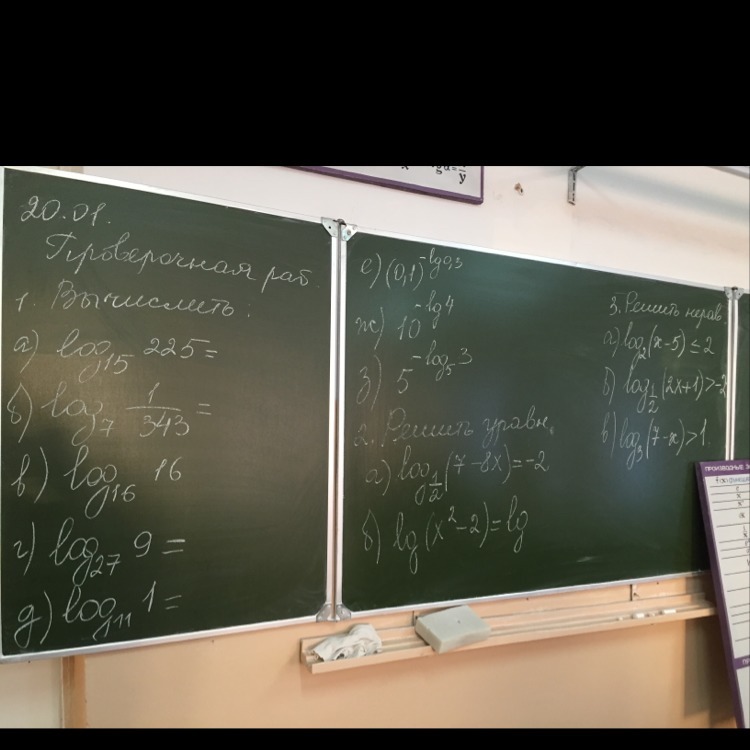 20.01.
Проверочная раб.
1. Вычислить:
а) log₁₅ 225 =
б) log₇ 1/343 =
в) log₁₆ 16
г) log₂₇ 9 =
д) log₁₁ 1 =
е) (0,1)^(-lg 0,3)
ж) 10^(-lg 4)
з) 5^(-log₅ 3)
2. Решить уравн.
а) log_(1/2) (7-8x) = -2
б) lg (x²-2) = lg
3. Решить нерав
а) log₂ (x-5) ≤ 2
б) log_(1/2) (2x+1) > -2
в) log₃ (7-x) > 1.
ПРОИЗВОДНЫЕ